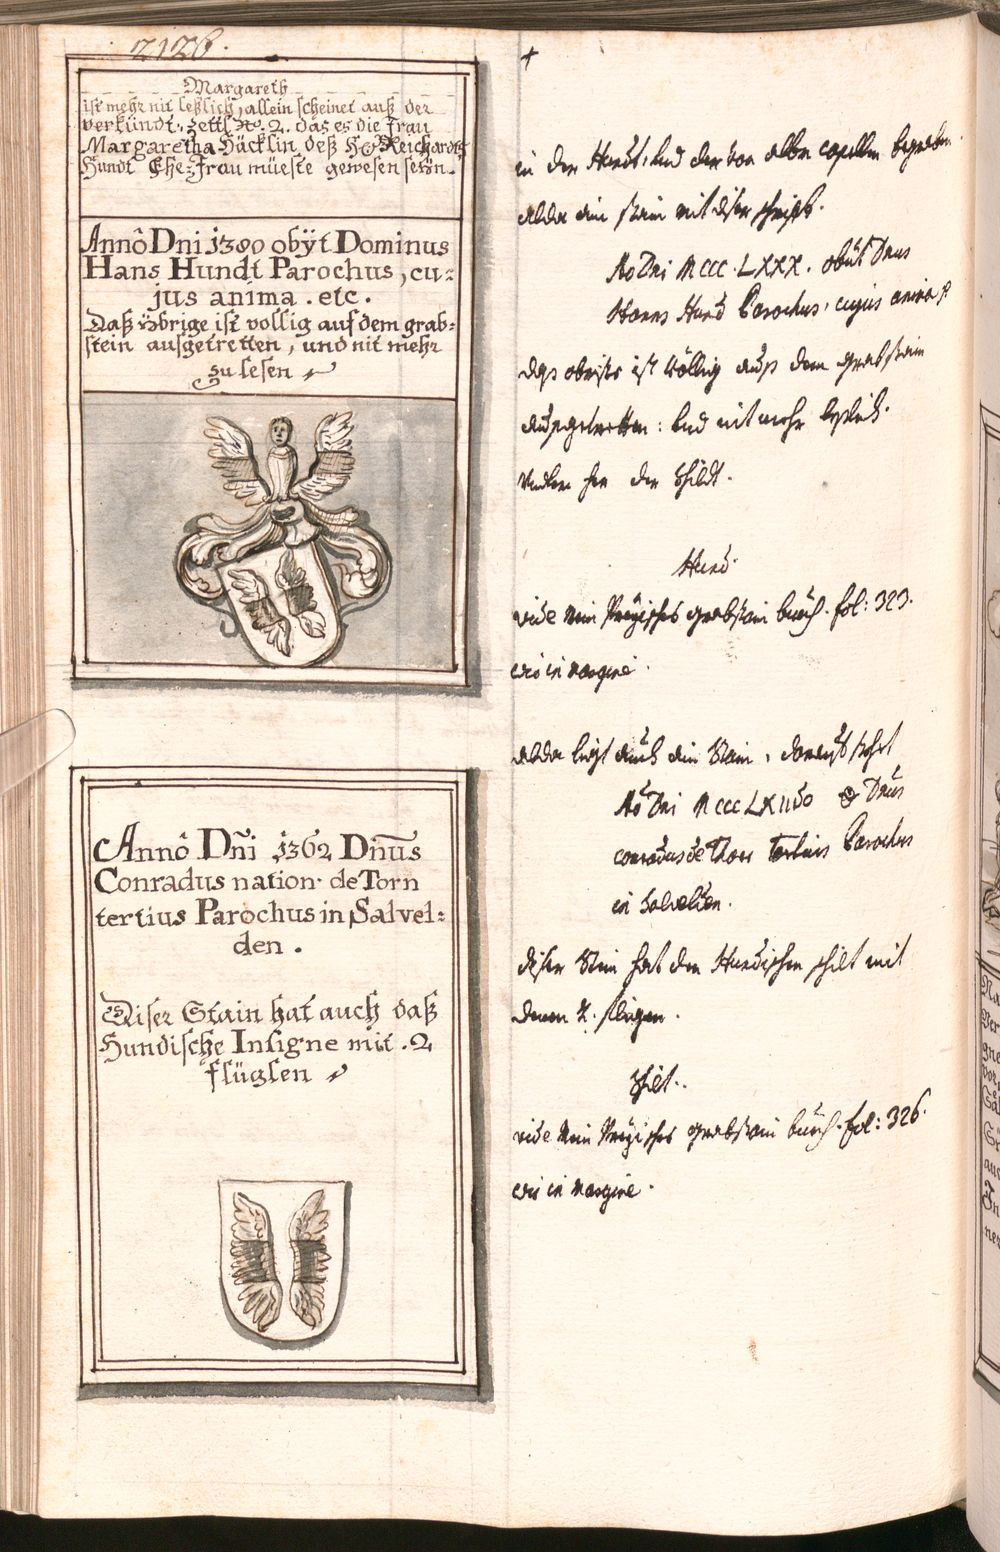 2126.
Margareth
ist mehr nit leßlich, allein scheinet auß der
verkündt. zettl No. 2. das es die frau
Margaretha Häcklin deß H. Reichardts
Hundt Ehe=frau müeste gewesen seÿn.
Annô Dni 1380 obÿt Dominus
Hans Hundt Parochus, cu=
jus anima . etc.
Daß ybrige ist vollig auf dem grab=
stein ausgetretten, und nit mehr
zu lesen
Annô Dñi 1362 Dñus
Conradus nation. de Torn
tertius Parochus in Salvel=
den .
Diser Stain hat auch daß
Hundische Insigne mit . 2
flüglen
+
in der Hundt, und der von albm capellen begraben
alda ein stain mit diser schrift.
Ao Dni MCCC. LXXX. obiit Dnus
Hanns Hund Parochus, cujus anima
das obrist ist völlig auß dem grabstain
außgetretten: und nit mehr leßlich.
der Schildt.
Hund.
vide mein grabstain buech. fol: 323.
wie in margine.
alda ligt auch ein Stain, darauf steht
Ao Dni MCCCLXII Dnus
conradus de Thorn tertius Parochus
in Salvelden.
diser Stein hat den Hundischen schilt mit
denen 2. fligen.
Schilt.
vide mein grabstain buech. fol: 326.
wie in margine.